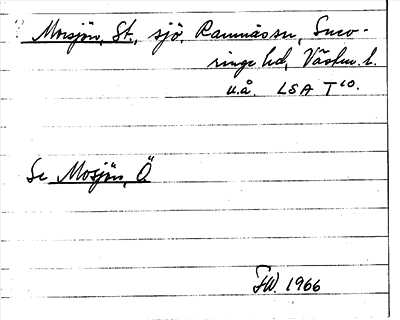 Morsjön, St., sjö, Ramnäs sn, Snev-
ringe hd, Västm. l.
u.å. LSA T10.
Se Mosjön, Ö
1966